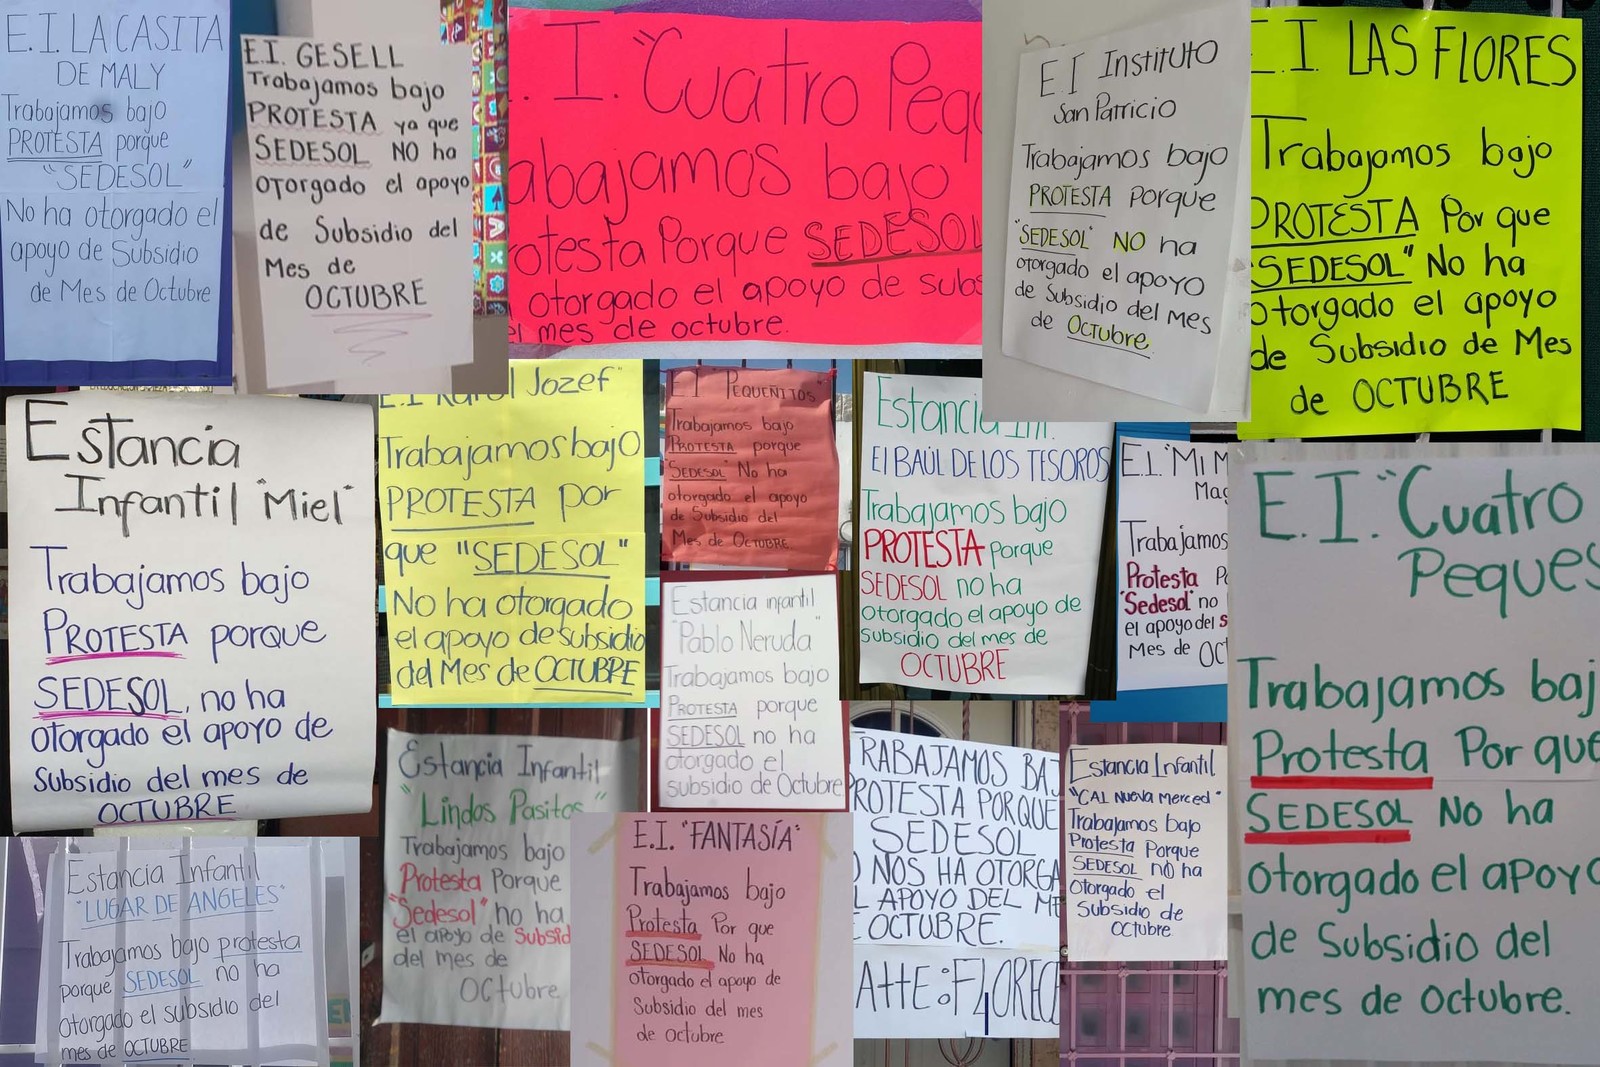 E.I. LA CASITA
DE MALY
Trabajamos bajo
PROTESTA porque
"SEDESOL"
No ha otorgado el
apoyo de Subsidio
de Mes de Octubre
E.I. GESELL
Trabajamos bajo
PROTESTA ya que
SEDESOL NO ha
otorgado el apoyo
de Subsidio del
Mes de
OCTUBRE
.I. "Cuatro Pequ
abajamos bajo
otesta Porque SEDESOL
otorgado el apoyo de subs
el mes de octubre.
E.I Instituto
San Patricio
Trabajamos bajo
PROTESTA porque
"SEDESOL" NO ha
otorgado el apoyo
de Subsidio del Mes
de Octubre.
E.I. LAS FLORES
Trabajamos bajo
PROTESTA Por que
"SEDESOL" No ha
otorgado el apoyo
de Subsidio de Mes
de OCTUBRE
Estancia
Infantil "Miel"
Trabajamos bajo
PROTESTA porque
SEDESOL, no ha
otorgado el apoyo de
Subsidio del mes de
OCTUBRE
E.I Karol Jozef"
Trabajamos bajo
PROTESTA por
que "SEDESOL"
No ha otorgado
el apoyo de subsidio
del Mes de OCTUBRE
E.I "PEQUEÑITOS"
Trabajamos bajo
PROTESTA porque
"SEDESOL" No ha
otorgado el apoyo
de Subsidio del
Mes de OCTUBRE.
Estancia Inf.
El BAÚL DE LOS TESOROS
Trabajamos bajo
PROTESTA porque
SEDESOL no ha
otorgado el apoyo de
subsidio del mes de
OCTUBRE
E.I. "MI M
Mag
Trabajamos
Protesta P
"Sedesol" no
el apoyo del s
Mes de OCT
E.I. "Cuatro
Peques
Trabajamos baj
Protesta Por que
SEDESOL No ha
otorgado el apoyo
de Subsidio del
mes de Octubre.
Estancia infantil
"Pablo Neruda"
Trabajamos bajo
PROTESTA porque
SEDESOL no ha
otorgado el
subsidio de Octubre
Estancia Infantil
"Lindos Pasitos"
Trabajamos bajo
Protesta Porque
"Sedesol" no ha
el apoyo de Subsid
del mes de
Octubre
TRABAJAMOS BAJ
PROTESTA PORQUE
SEDESOL
O NOS HA OTORGA
L APOYO DEL ME
E OCTUBRE.
Atte: FLORECE
Estancia Infantil
"CAI Nueva Merced"
Trabajamos bajo
Protesta Porque
SEDESOL no ha
Otorgado el
Subsidio de
Octubre.
Estancia Infantil
"LUGAR DE ANGELES"
Trabajamos bajo protesta
porque SEDESOL no ha
otorgado el subsidio del
mes de OCTUBRE
E.I. "FANTASÍA"
Trabajamos bajo
Protesta Por que
SEDESOL No ha
otorgado el apoyo de
Subsidio del mes
de Octubre